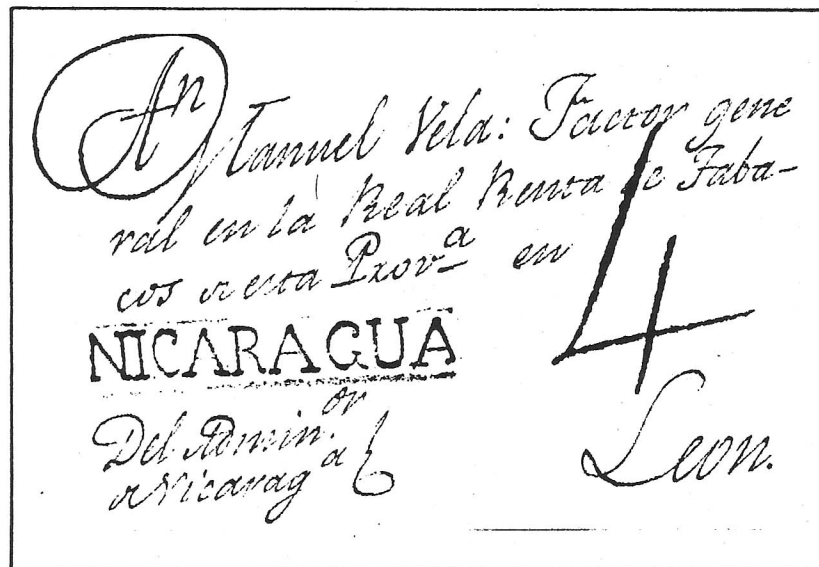 An Manuel Vela: Factor gene
ral en la Real Renta de Taba-
cos de esta Prova en
4
NICARAGUA
Del Adminor
de Nicaraga
Leon.